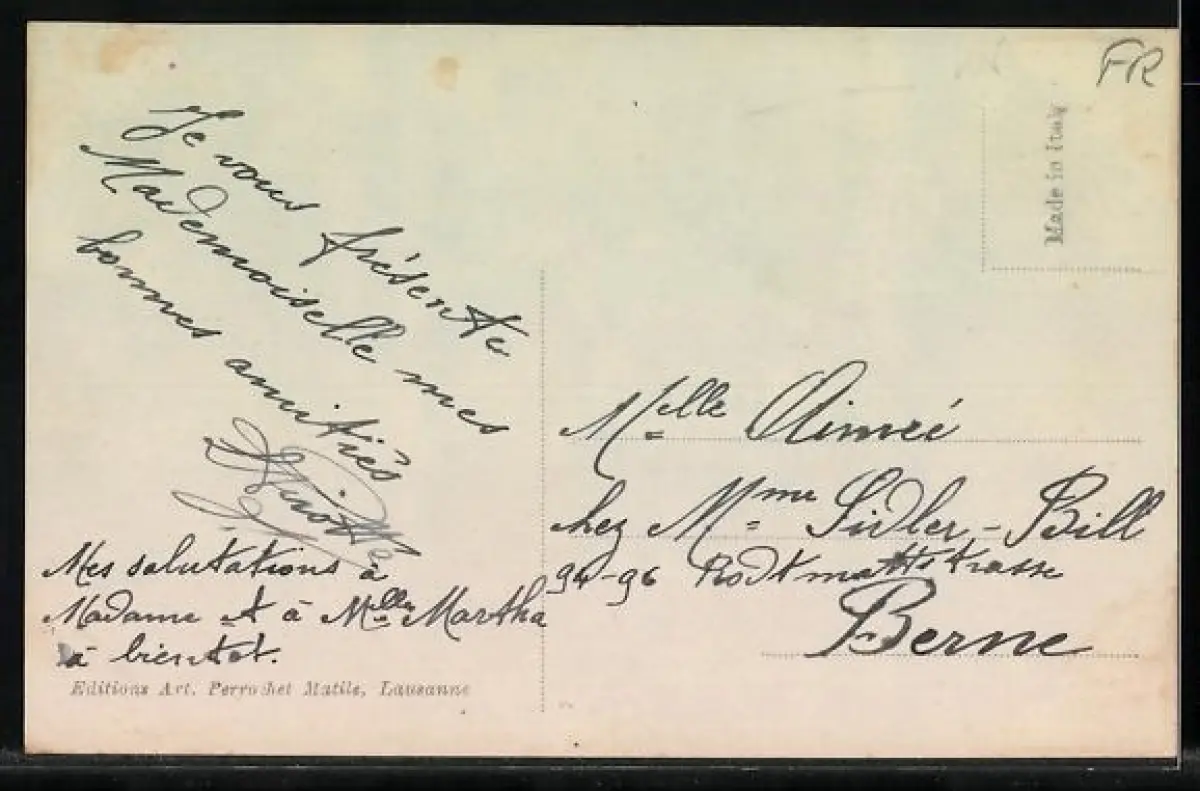 FR
Made in Italy
Je vous présente
Mademoiselle mes
bonnes amitiés
Mes salutations à
Madame et à Mlle Martha
à bientot.
Editions Art. Perrochet Matile, Lausanne
Melle Aimée
chez Mme Sidler-Bill
94-96 Rodtmattstrasse
Berne